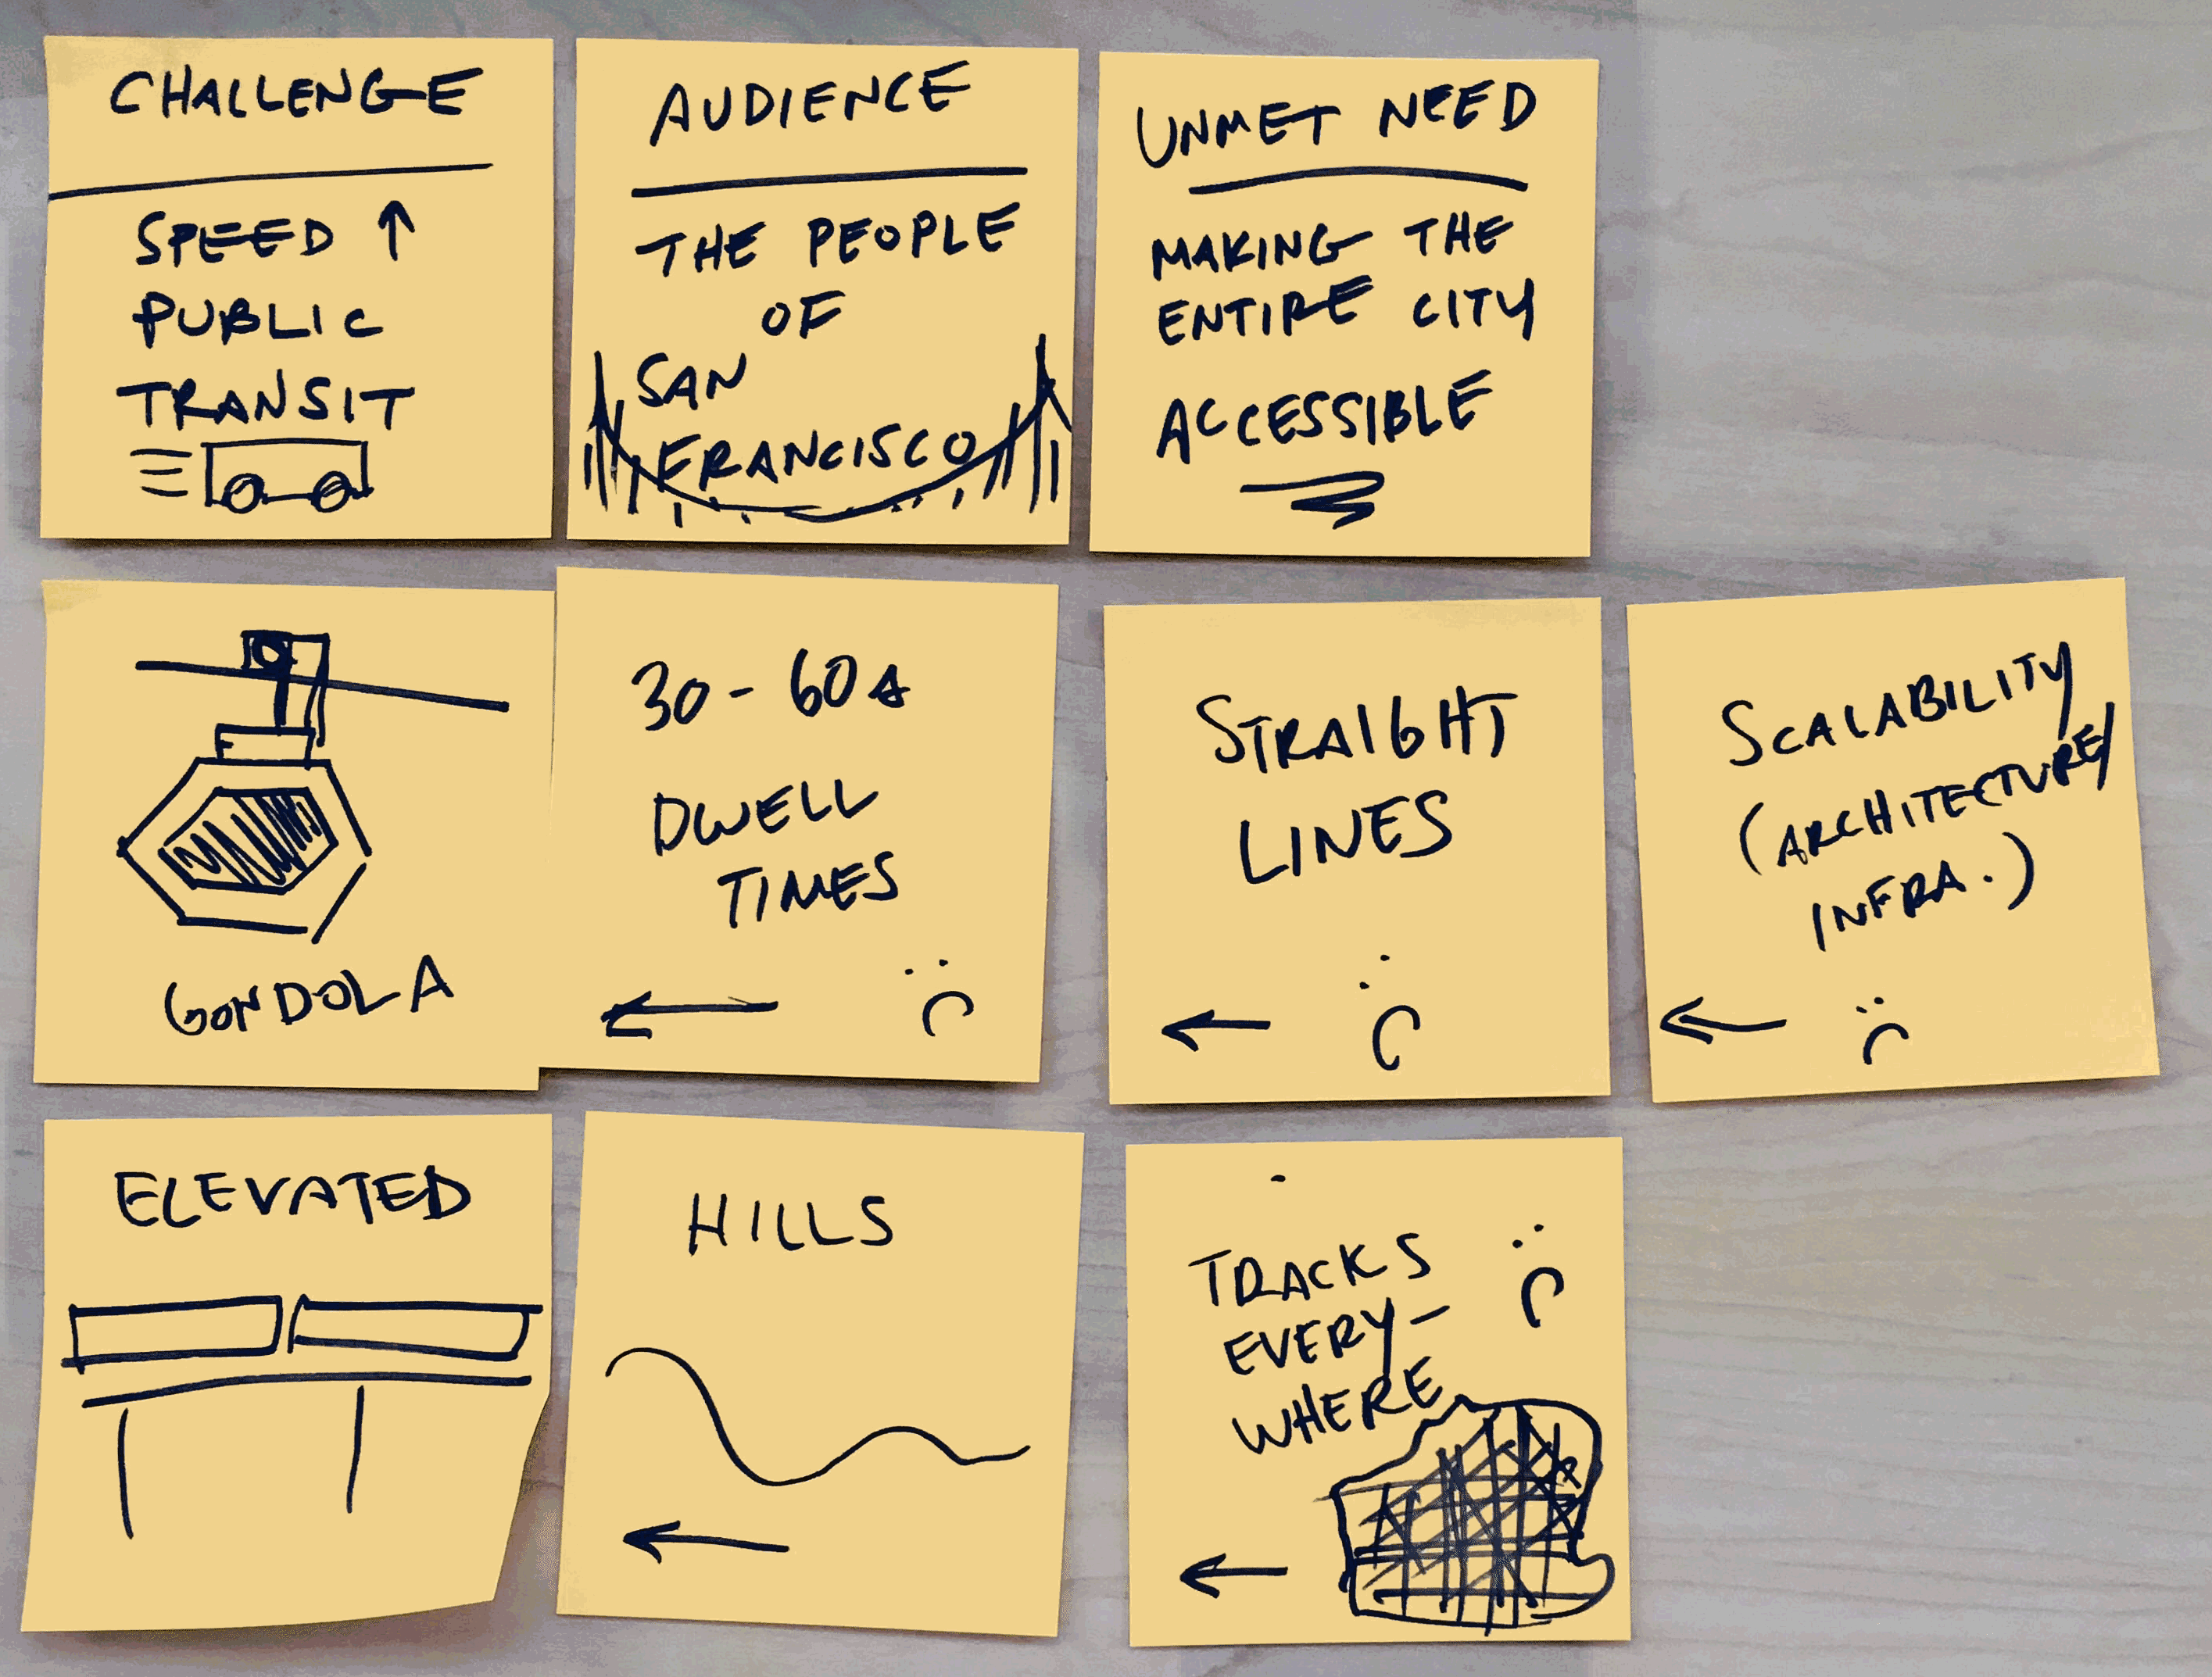 CHALLENGE
SPEED ↑
PUBLIC
TRANSIT
AUDIENCE
THE PEOPLE
OF
SAN
FRANCISCO
UNMET NEED
MAKING THE
ENTIRE CITY
ACCESSIBLE
GONDOLA
30 - 60s
DWELL
TIMES
←
STRAIGHT
LINES
←
SCALABILITY
(ARCHITECTURE/
INFRA.)
←
ELEVATED
HILLS
←
TRACKS
EVERY-
WHERE
←